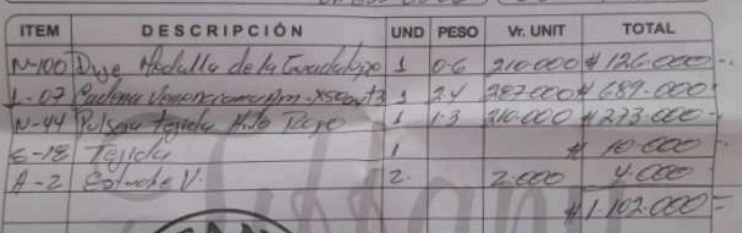 ITEM DESCRIPCIÓN UND PESO Vr. UNIT TOTAL
N-100 Dije Medalla de la Guadalupe 1 0-6 210.000 # 126.000
L-07 Cadena Veneciana 1 2.4 287.000 # 689.000
N-44 Pulsera tejida Hilo Rojo 1 1-3 210.000 # 273.000
6-18 Tejida 1 # 10.000
A-2 Estuche V. 2. 2.000 4.000
# 1.102.000=